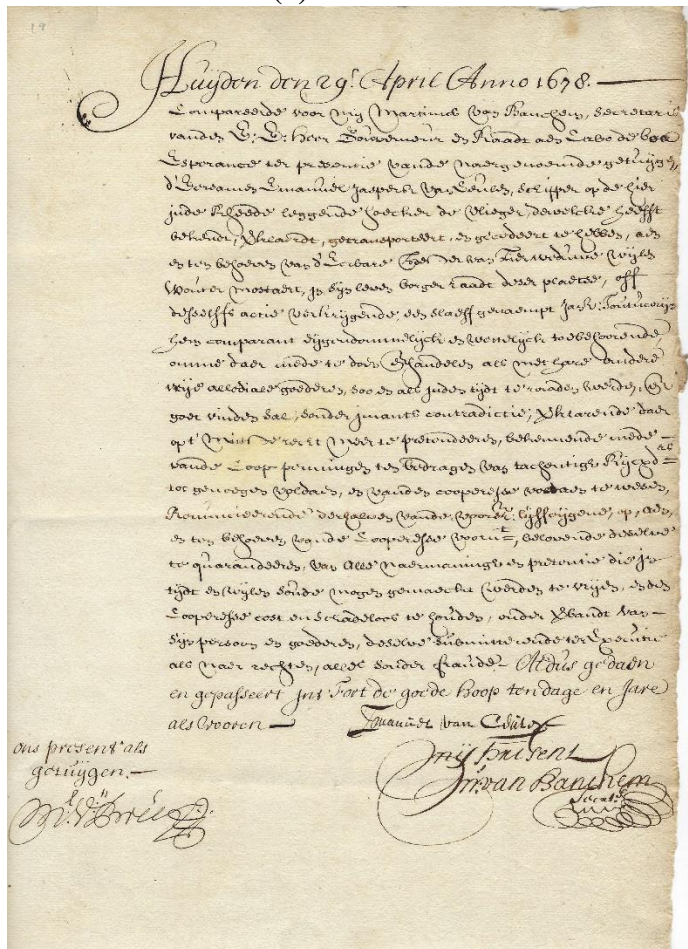 19
Huijden den 29.' April Anno 1678.
Compareerde voor mij Martinus van Banchem, Secretaris
vanden E: E: heer Gouverneur en Raadt des Cabo de boa
Esperance ter presentie vande naergenoemde getuijgen,
d'Eersamen Emanuel Jaspersz van schipper op de hier
jnde Rheede leggende hoecker de vlieger, dewelcke heefft
bekendt, verklaerdt, getransporteert, en gecedeert te hebben, aen
en ten behoeve van d'Eerbare wed.e van wijlen
Wouter Mostaert, in sijn leven borger raadt deser plaetse, off
deselffs actie verkrijgende een slaeff genaempt
hem comparant eijgendommelijck en wettelijck toebehoorende,
omme daer mede te doen en handelen als met hare andere
vrije allodiale goederen, soo en als jnden tijdt te raaden werden, en
goet vinden sal, sonder jmants contradictie, verklarende daer
op 't minste recht meer te pretendeeren, bekennende mede
vande Coop penningen ten bedragen van tachentigh Rijcxd.rs
tot genoegen voldaen, en vanden cooperesse voldaen te wesen,
Renuncieerende derhalven vande voorsz: lijffeijgene, op, aen,
en ten behoeve vande Cooperesse voorn.t, belovende deselve
te guarandeeren, van alle naermaningh en pretentie die in
tijdt en wijlen soude mogen gemaeckt werden te vrijen, en den
Cooperesse cost en schadeloos te houden, onder verbandt van
sijn persoon en goederen, deselve submitteerende ter Executie
als naer rechten, alles sonder fraude. Aldus gedaen
en gepasseert jnt Fort de goede hoop ten dage en Jare
als vooren
Emanuel van
ons present als
getuijgen.
mij present
M: van Banchem
Secret.s